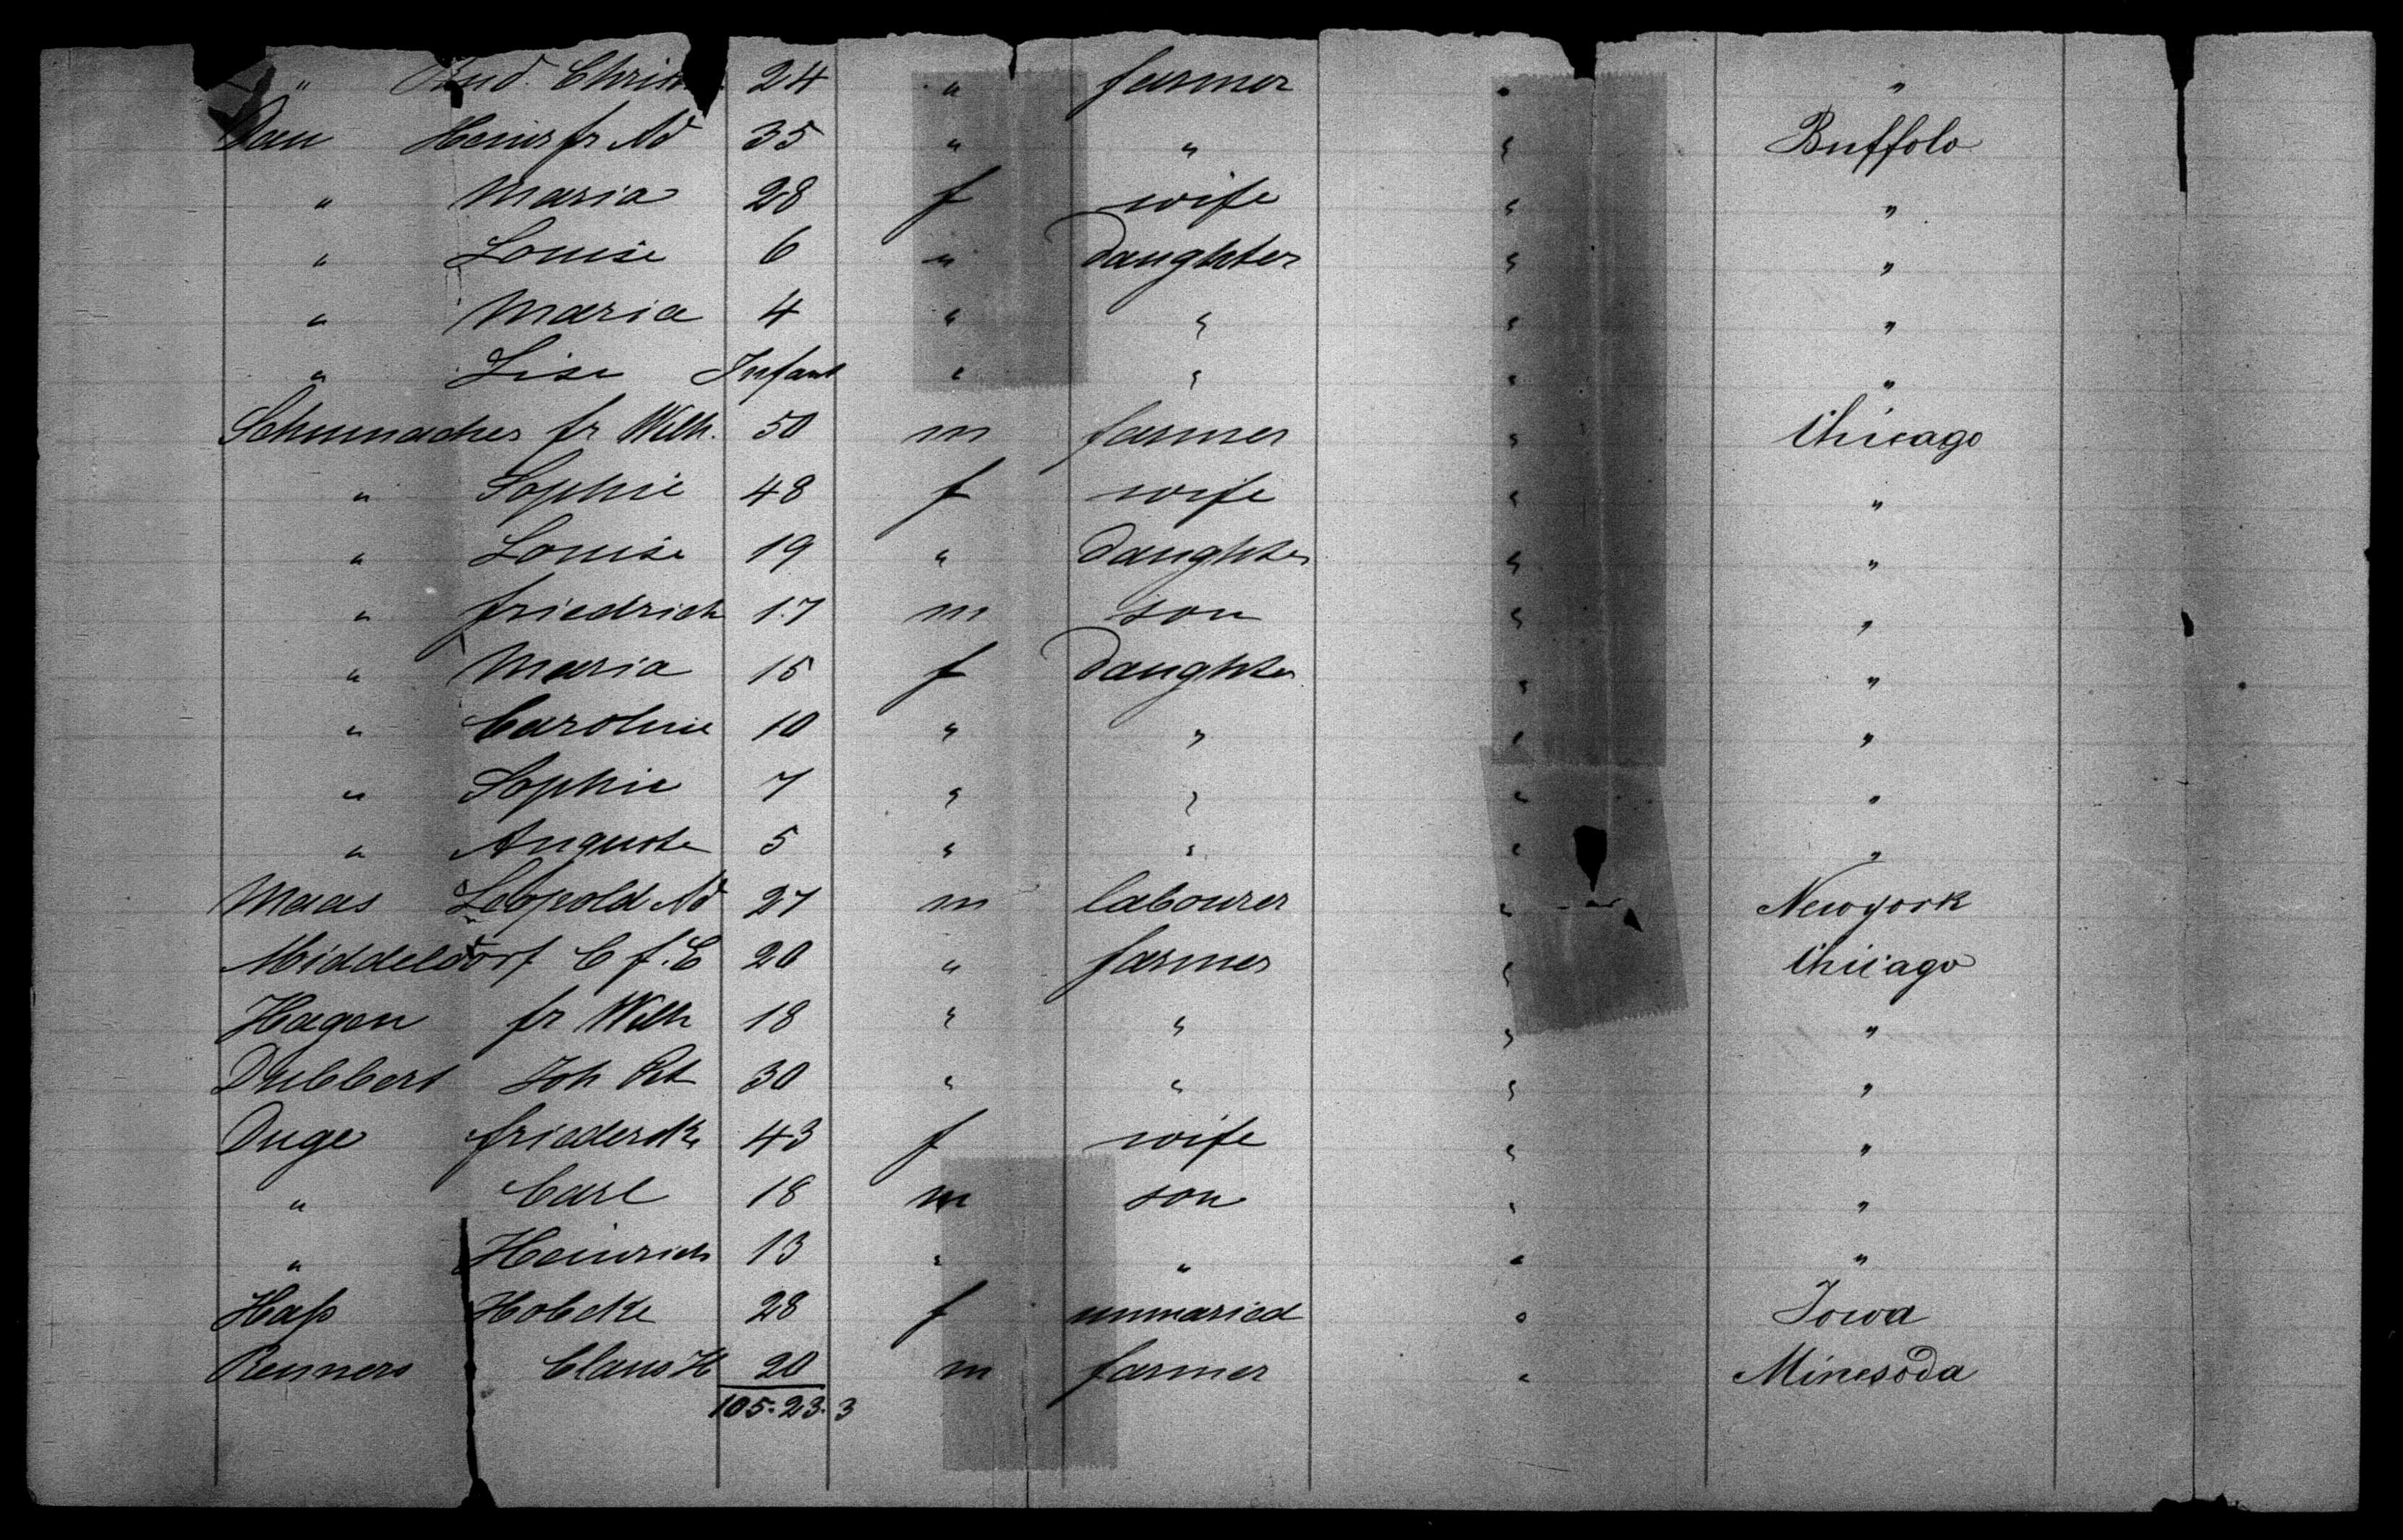 " Rud. Christ. 24 " farmer " "
Dau Heinr fr Ad 35 " " " Buffolo
" Maria 28 f wife " "
" Louise 6 " Daughter " "
" Maria 4 " " " "
" Lise Infant " " " "
Schumacher fr Wilh. 50 m farmer " Chicago
" Sophie 48 f wife " "
" Louise 19 " Daughter " "
" friedrich 17 m son " "
" Maria 15 f Daughter " "
" Caroline 10 " " " "
" Sophie 7 " " " "
" Auguste 5 " " " "
Maas Leopold Ad 27 m labourer " Newyork
Middeldorf C f. E 20 " farmer " Chicago
Hagen fr Wilh 18 " " " "
Dubbert Joh Pet 30 " " " "
Duge friederike 43 f wife " "
" Carl 18 m son " "
" Heinrich 13 " " " "
Haß 28 f unmaried " Iowa
Renners Claus H 20 m farmer " Minesoda
105. 23. 3